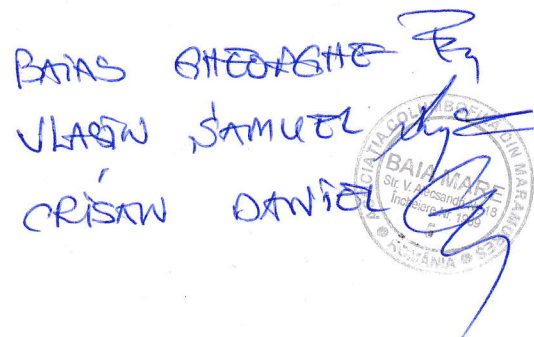 BAIAS GHEORGHE
VLASIN SAMUEL
CRISAN DANIEL
ASOCIATIA COLUMBOFILA DIN MARAMURES
BAIA MARE
Str. V. Alecsandri
18
Incheiere nr. 1989
ROMANIA